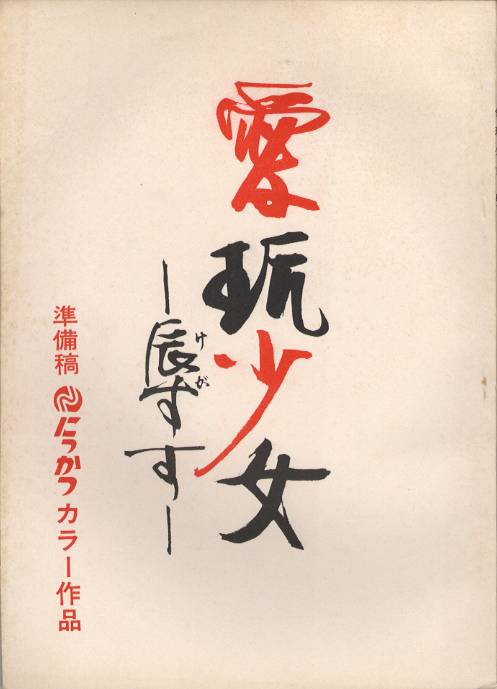 愛玩少女
―辱す―
けが
準備稿 にっかつカラー作品